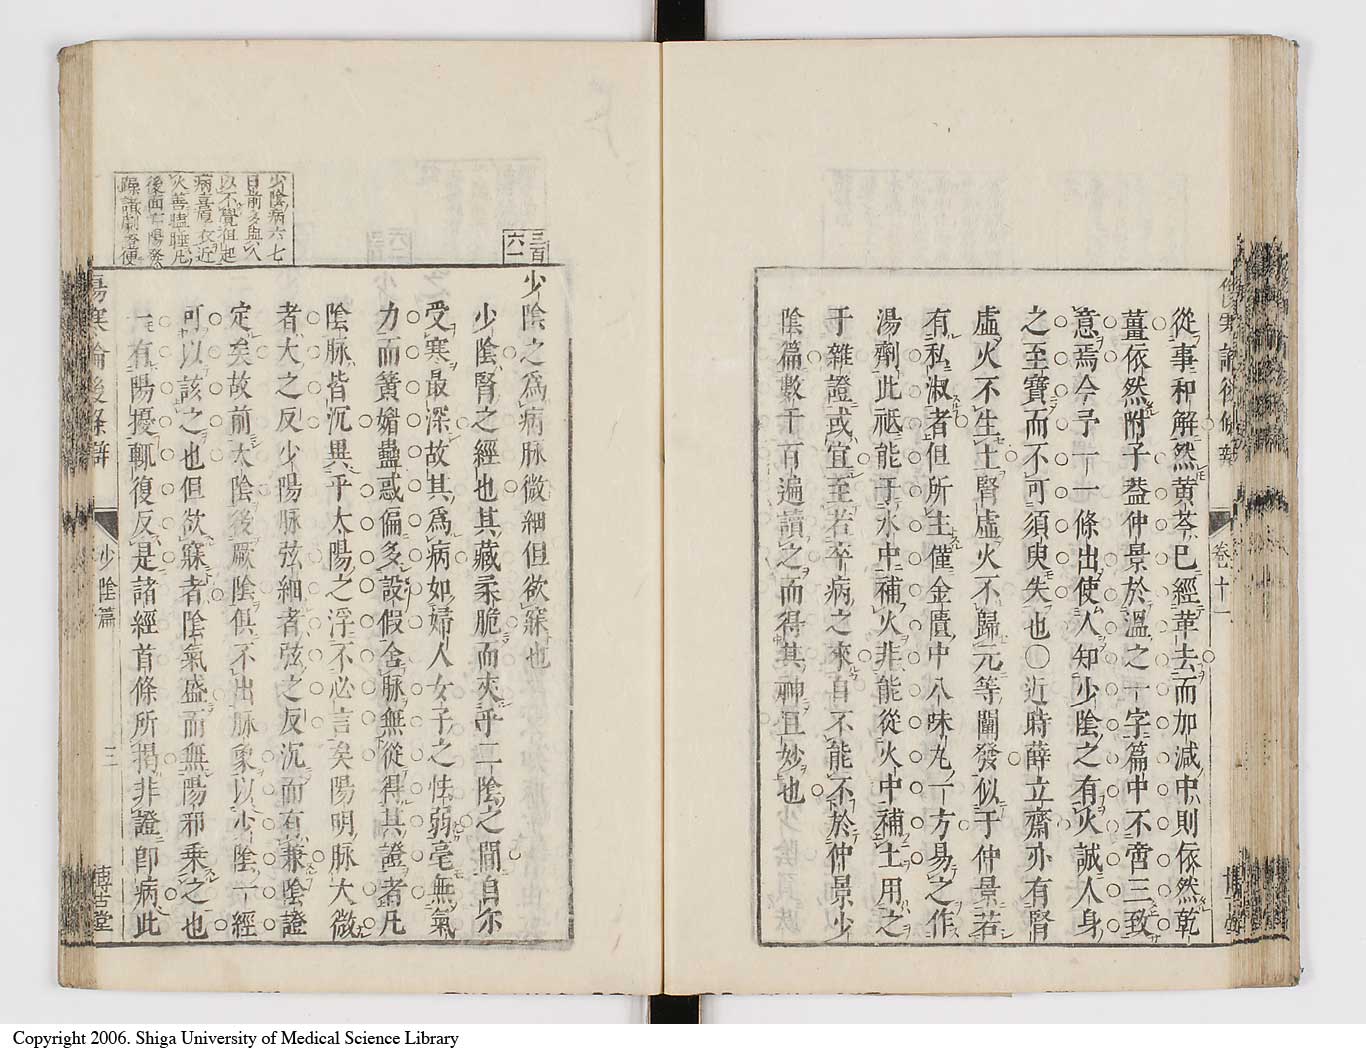 從事和解然黄芩已經革去而加减中則依然乾
薑依然附子葢仲景於溫之一字篇中不啻三致
意焉今予一一條出使人知少陰之有火誠人身
之至寶而不可須臾失也〇近時薛立齋亦有腎
虛火不生土腎虛火不歸元等闡發似于仲景若
有私淑者但所主僅金匱中八味丸一方易之作
湯劑此祗能于水中補火非能從火中補土用之
于雜證或宜至若卒病之來自不能不於仲景少
陰篇數千百遍讀之而得其神且妙也
卷十一
三百
六一
少陰之爲病脉微細但欲寐也
少陰腎之經也其藏柔脆而夾乎二陰之間自尔
受寒最深故其爲病如婦人女子之怯弱毫無氣
力而簧媚蠱惑偏多設假舍脉無從得其證者凡
陰脉皆沉異乎太陽之浮不必言矣陽明脉大微
者大之反少陽脉弦細者弦之反沉而有兼陰證
定矣故前太陰後厥陰俱不出脉象以少陰一經
可以該之也但欲寐者陰氣盛而無陽邪乗之也
一有陽擾輒復反是諸經首條所揭非證即病此
少陰病六七
日前多與人
以不覺但起
病喜厚衣近
火善瞌睡凡
後面亡陽發
躁諸劇證便
傷寒論後條辯
少陰篇
三
博古堂
Copyright 2006. Shiga University of Medical Science Library